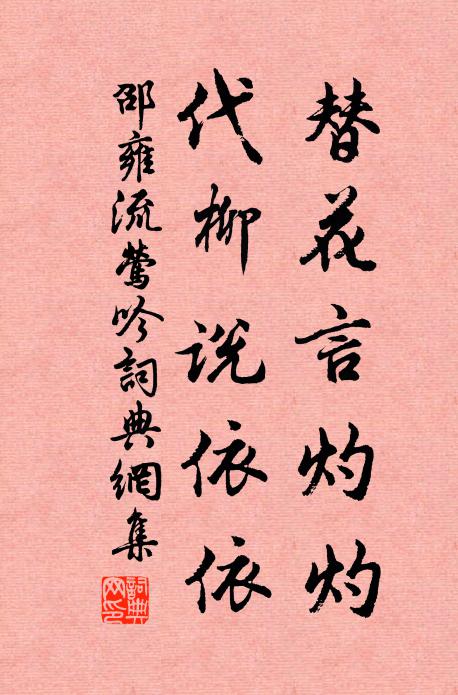 替花言灼灼
代柳說依依
邵雍流鶯吟詞典網集
詞典網印